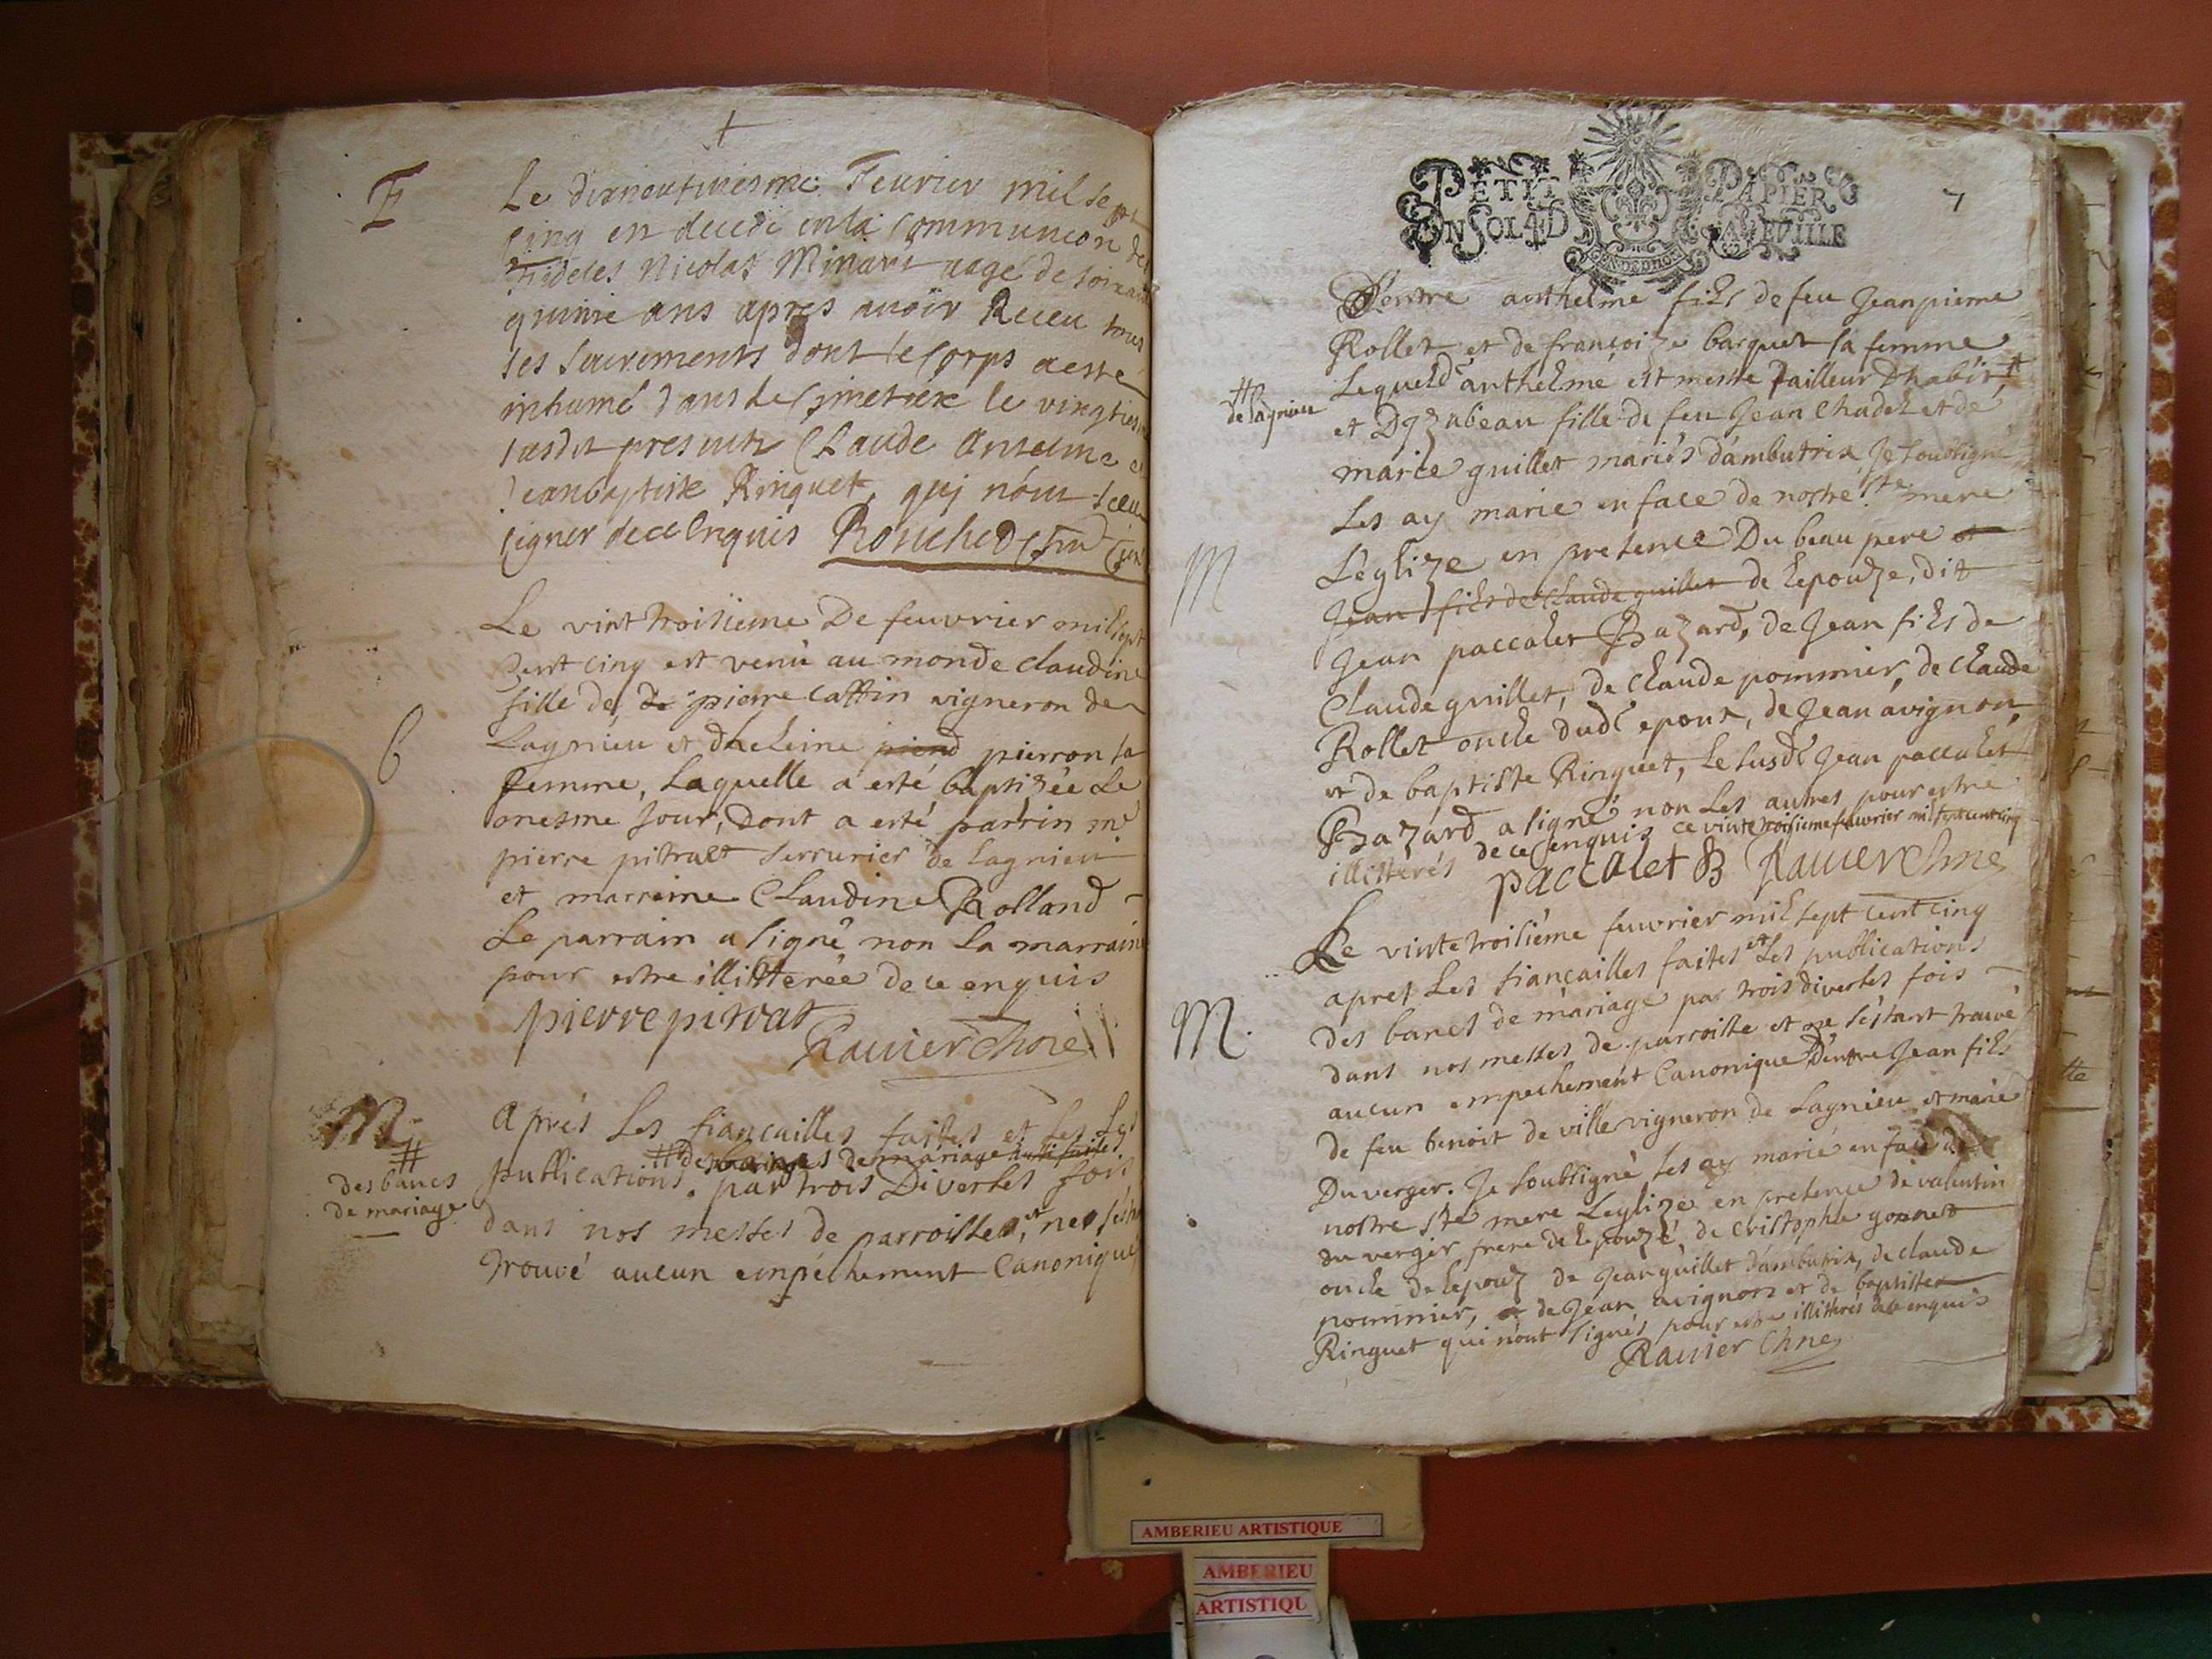 E
Le dixneufuiesme Feurier mil sept
cinq est decedé en la Communion des
fideles Nicolas Minart aagé de soixante
quinse ans apres auoir Receu tous
ses sacrements dont le Corps a esté
inhumé dans le Cimetiere le vingtiesme
susdit presents Claude Anselme et
Jeanbaptiste Ringuet, qui n'ont sceu
signer de ce enquis
Le vint troisieme De feuvrier mil sept
Cent cinq est venu au monde claudine
fille de de pierre Caffin vigneron de
B
Lagnieu et dheleine pierd pierron sa
femme, Laquelle a esté baptizée Le
mesme Jour, Dont a esté parrin me
pierre pitrat serrurier de Lagnieu
et marreine Claudine Rolland
Le parrain a signé non La marraine
pour estre illitterée de ce enquis
pierre pitrat
Rauier
M.
Aprés Les fiancailles faites et Les
# des bancs de mariage
publications par trois Diverses fois
# des bancs
de mariage
dans nos messes de parroisse, et ne s'est
trouvé aucun empéchement Canonique
PETIT PAPIER
UN SOL 4 D LA FEUILLE
7
D'entre anthelme fils de feu Jean pierre
Rollet et de françoize barquet sa femme
Lequeld anthelme est messe Tailleur Dhabit, #
# de Lagnieu
et Dyzabeau fille de feu Jean Chadel et de
marie guillet mariés d'ambutrix Je soubsigné
Les ay marié en face de nostre ste mere
M
L'eglize en presence Du beau pere et
Jean fils de Claude guillet de L'epouze, dit
Jean paccalet Bazard, de Jean fils de
Claude guillet, de Claude pommier, de Claude
Rollet oncle dudt epoux, de Jean avignon,
et de baptiste Ringuet, Le susdt Jean paccalet
Bazard a signé non Les autres pour estre
illitterés de ce enquis ce vinte troisieme feuvrier mil sept cent cinq
paccalet B Rauier
Le vinte troisiéme feuvrier mil sept cent cinq
apres Les fiancailles faites et Les publications
M.
des bancs de mariage par trois diverses fois
dans nos messes de parroisse et ne s'estant trouvé
aucun empechement Canonique D'entre Jean fils
de feu benoit de ville vigneron de Lagnieu et marie
Duverger. Je soubsigné Les ay marié en face de
nostre ste mere L'eglize en presence de valentin
du verger frere de L'epouze, de Cristophe gonnet
oncle de L'epouz de Jean guillet d'ambutrix, de claude
pommier, de Jean avignon et de baptiste
Ringuet qui n'ont signés pour estre illitterés de ce enquis
Rauier
AMBERIEU ARTISTIQUE
AMBERIEU
ARTISTIQU